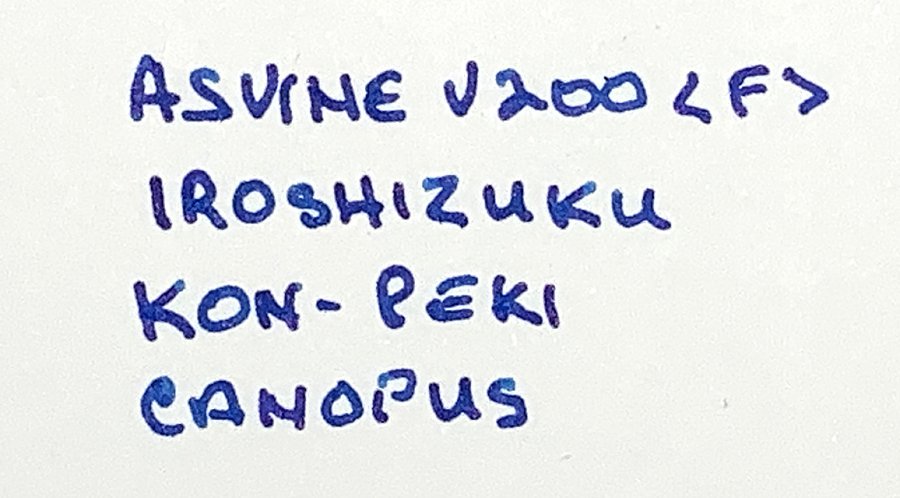 ASVINE V200 <F>
IROSHIZUKU
KON-PEKI
CANOPUS